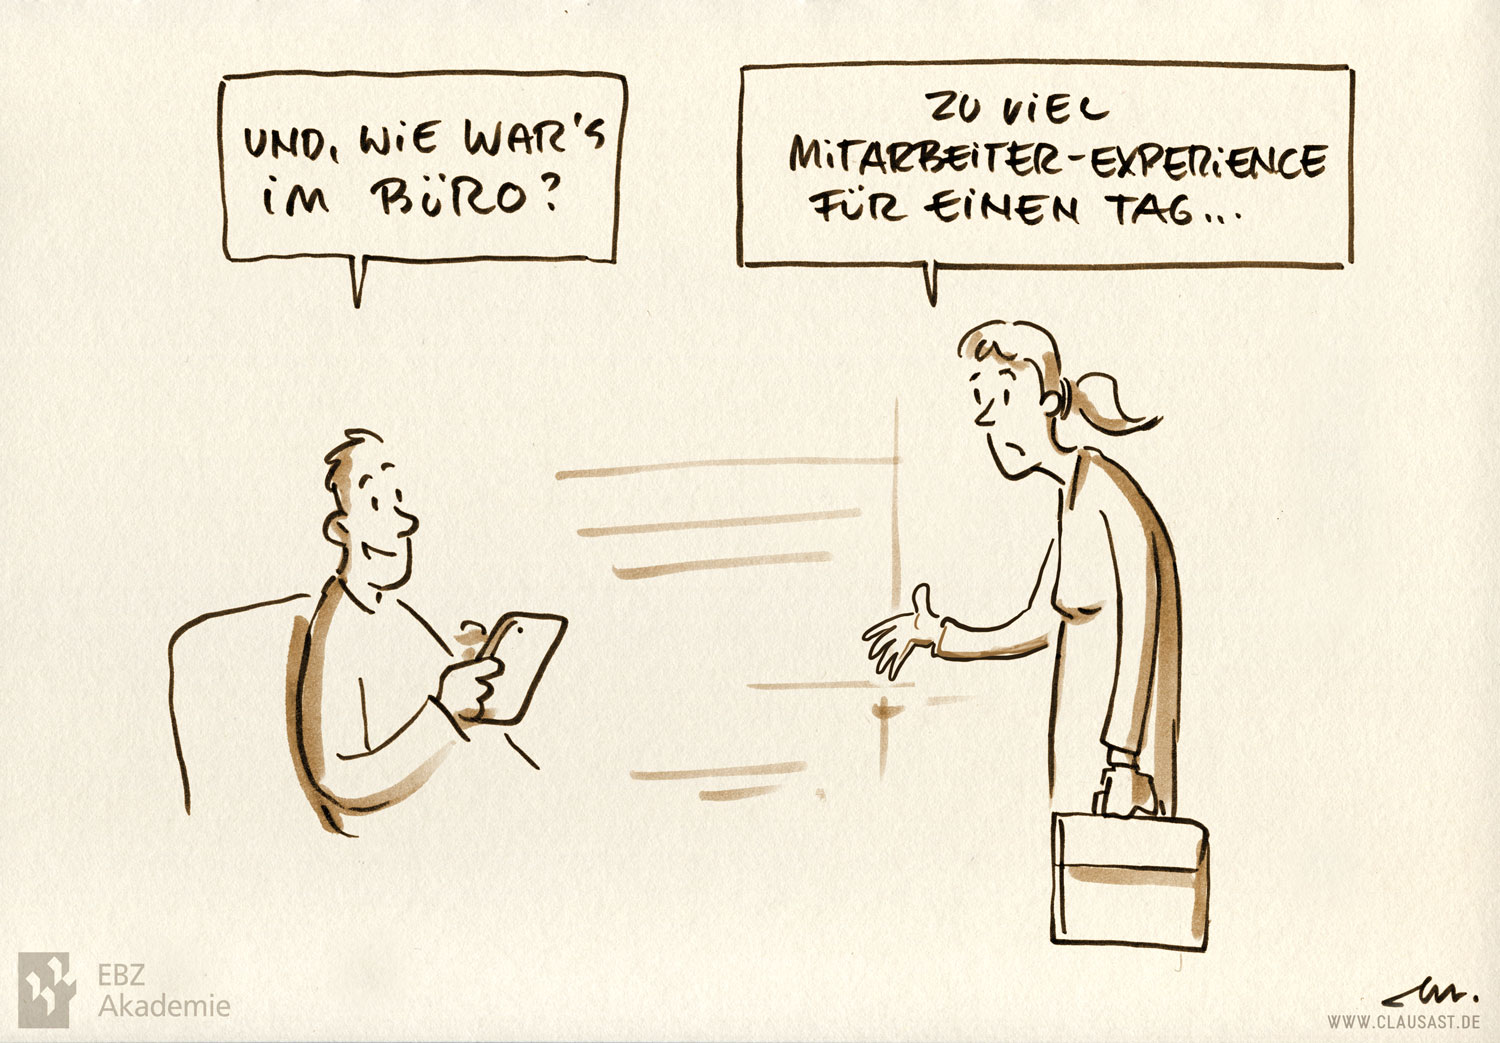 UND, WIE WAR'S
IM BÜRO?
ZU VIEL
MITARBEITER-EXPERIENCE
FÜR EINEN TAG...
EBZ
Akademie
WWW.CLAUSAST.DE